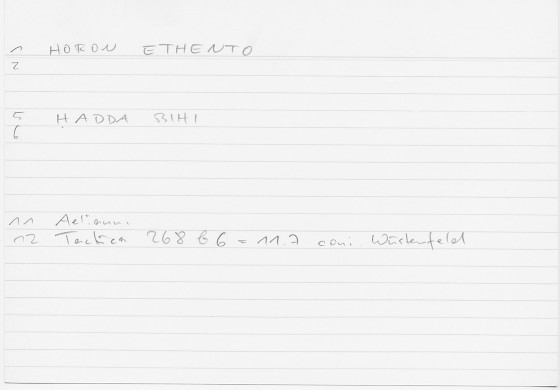 1 HORON ETHENTO
2
5 HADDA BIHI
6
11 Aeliann.
12 Tactica 268 b 6 = 11.7 coni. Wüstenfeld